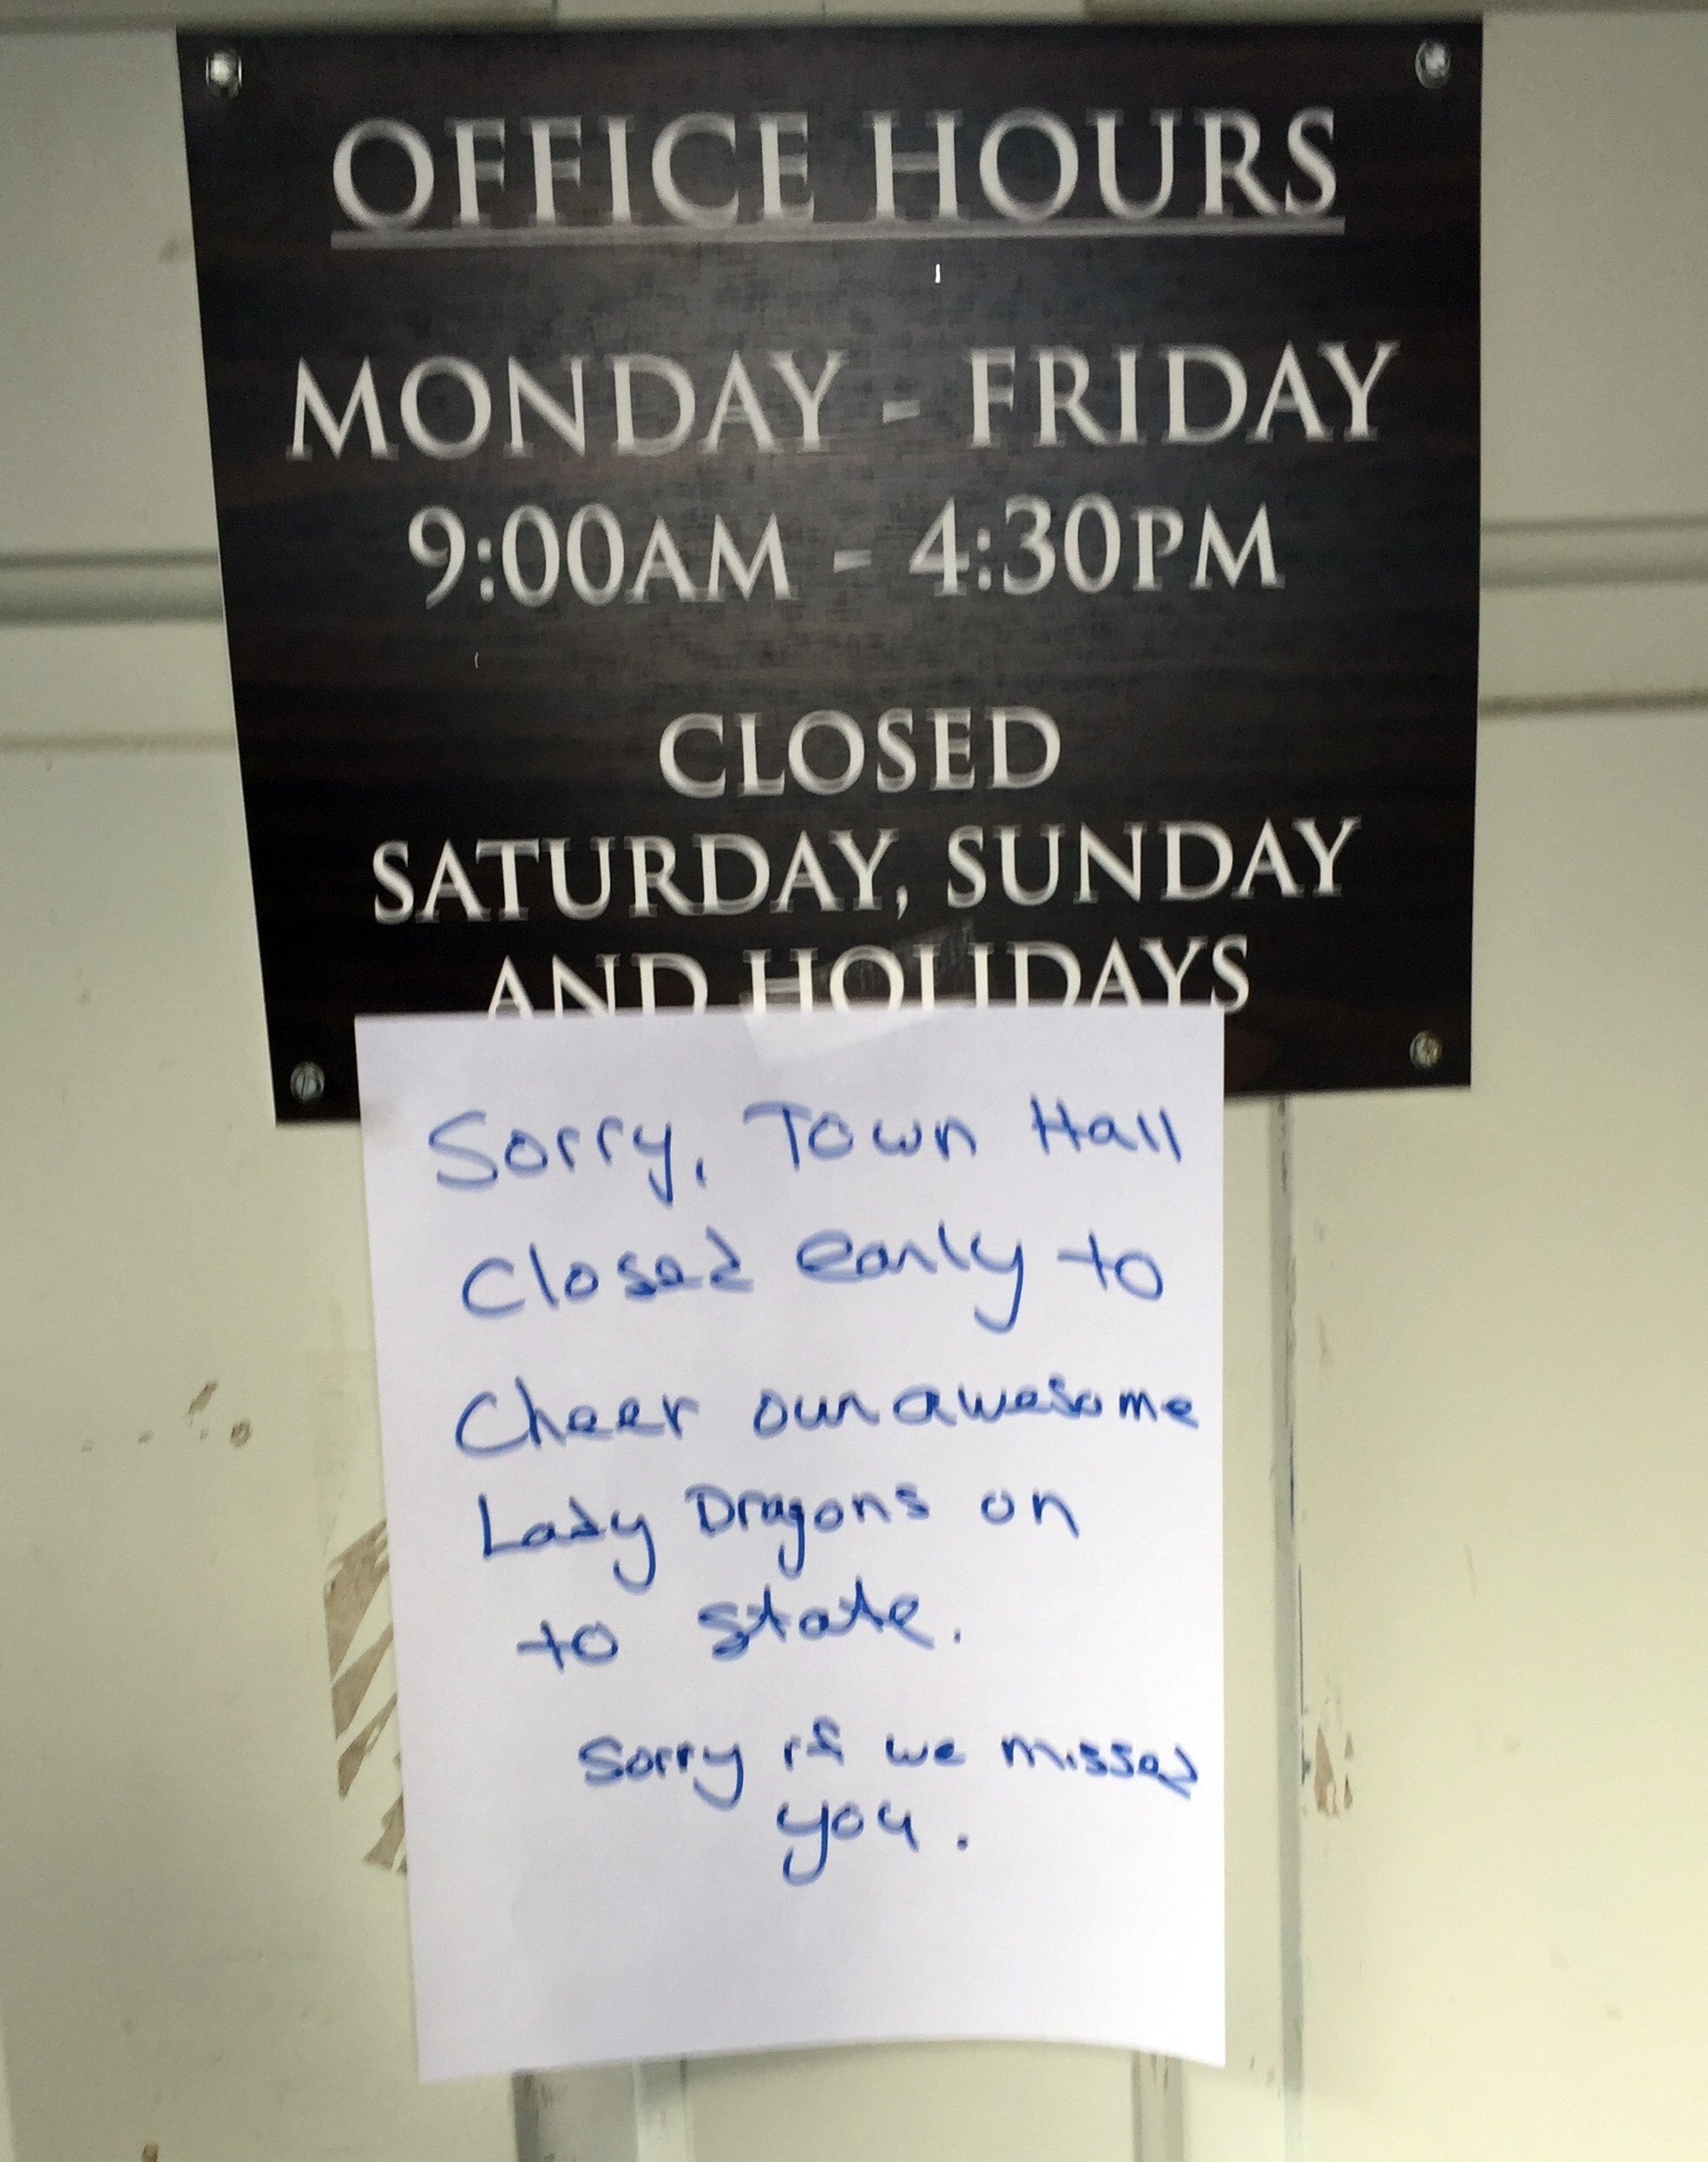 OFFICE HOURS
MONDAY - FRIDAY
9:00AM - 4:30PM
CLOSED
SATURDAY, SUNDAY
AND HOLIDAYS
Sorry, Town Hall
Closed early to
Cheer our awesome
Lady Dragons on
to state.
Sorry if we missed
you.